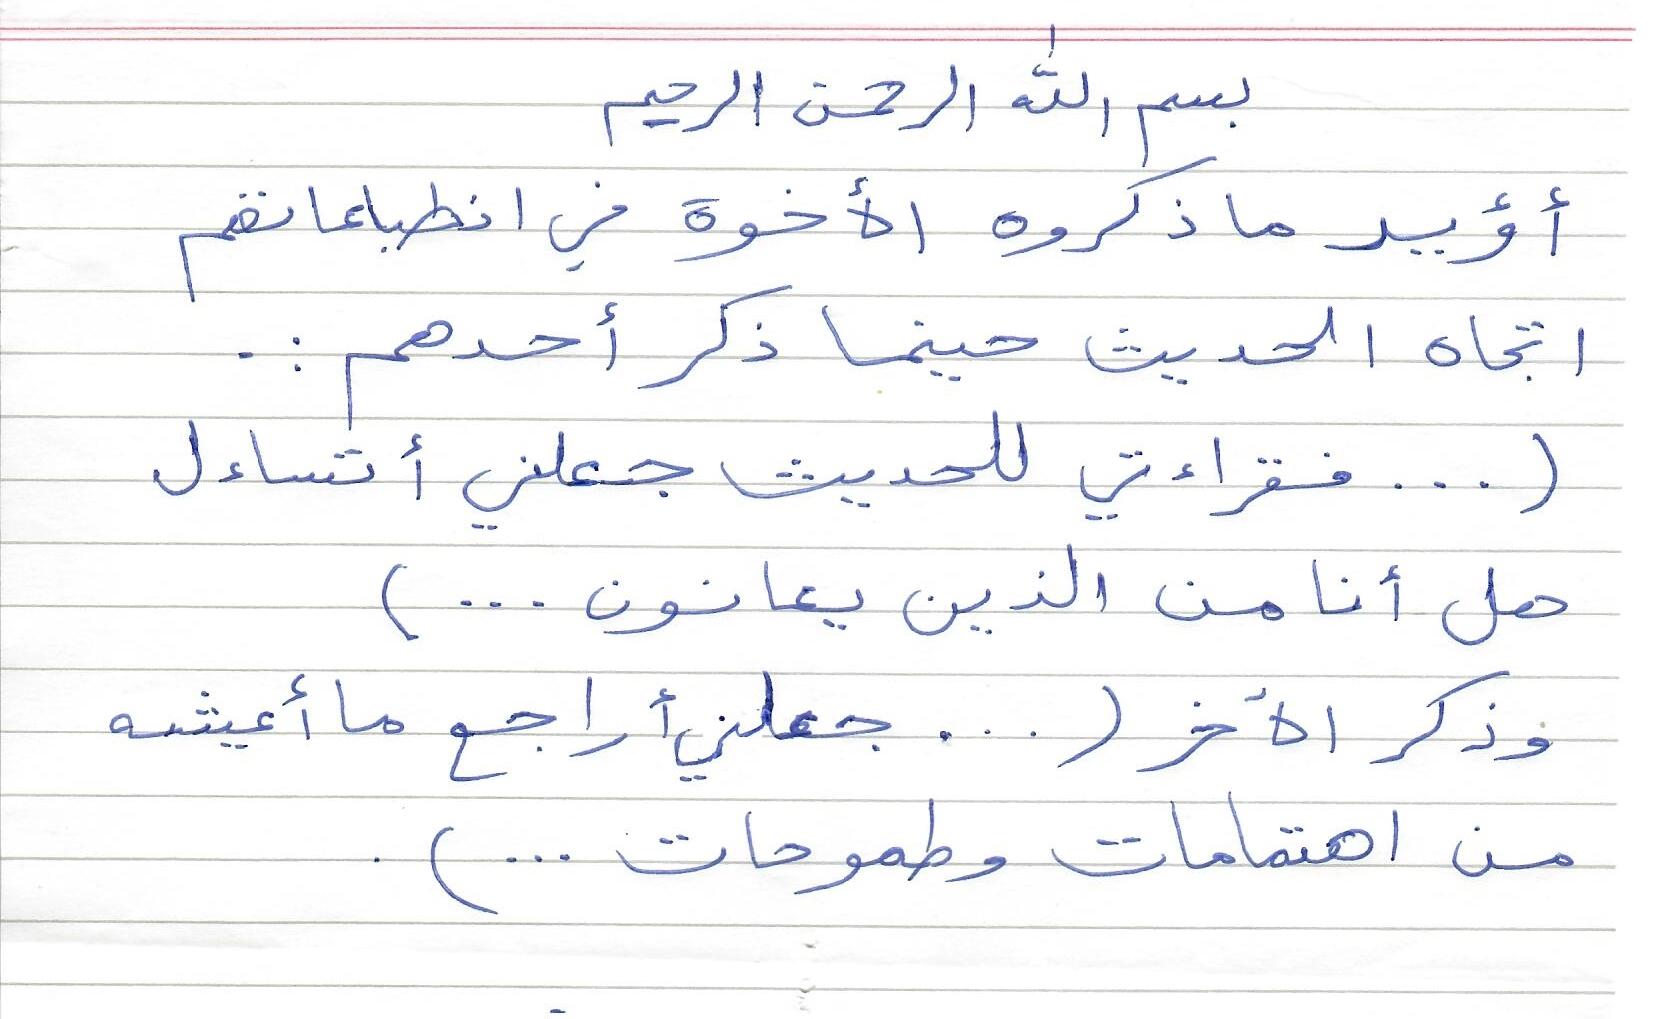 بسم الله الرحمن الرحيم
أؤيد ما ذكروه الأخوة في انطباعاتهم
اتجاه الحديث حينما ذكر أحدهم :.
(... فقراءتي للحديث جعلني أتساءل
هل أنا من الذين يعانون ...)
وذكر الأخر (... جعلني أراجع ما أعيشه
من اهتمامات وطموحات ...) .